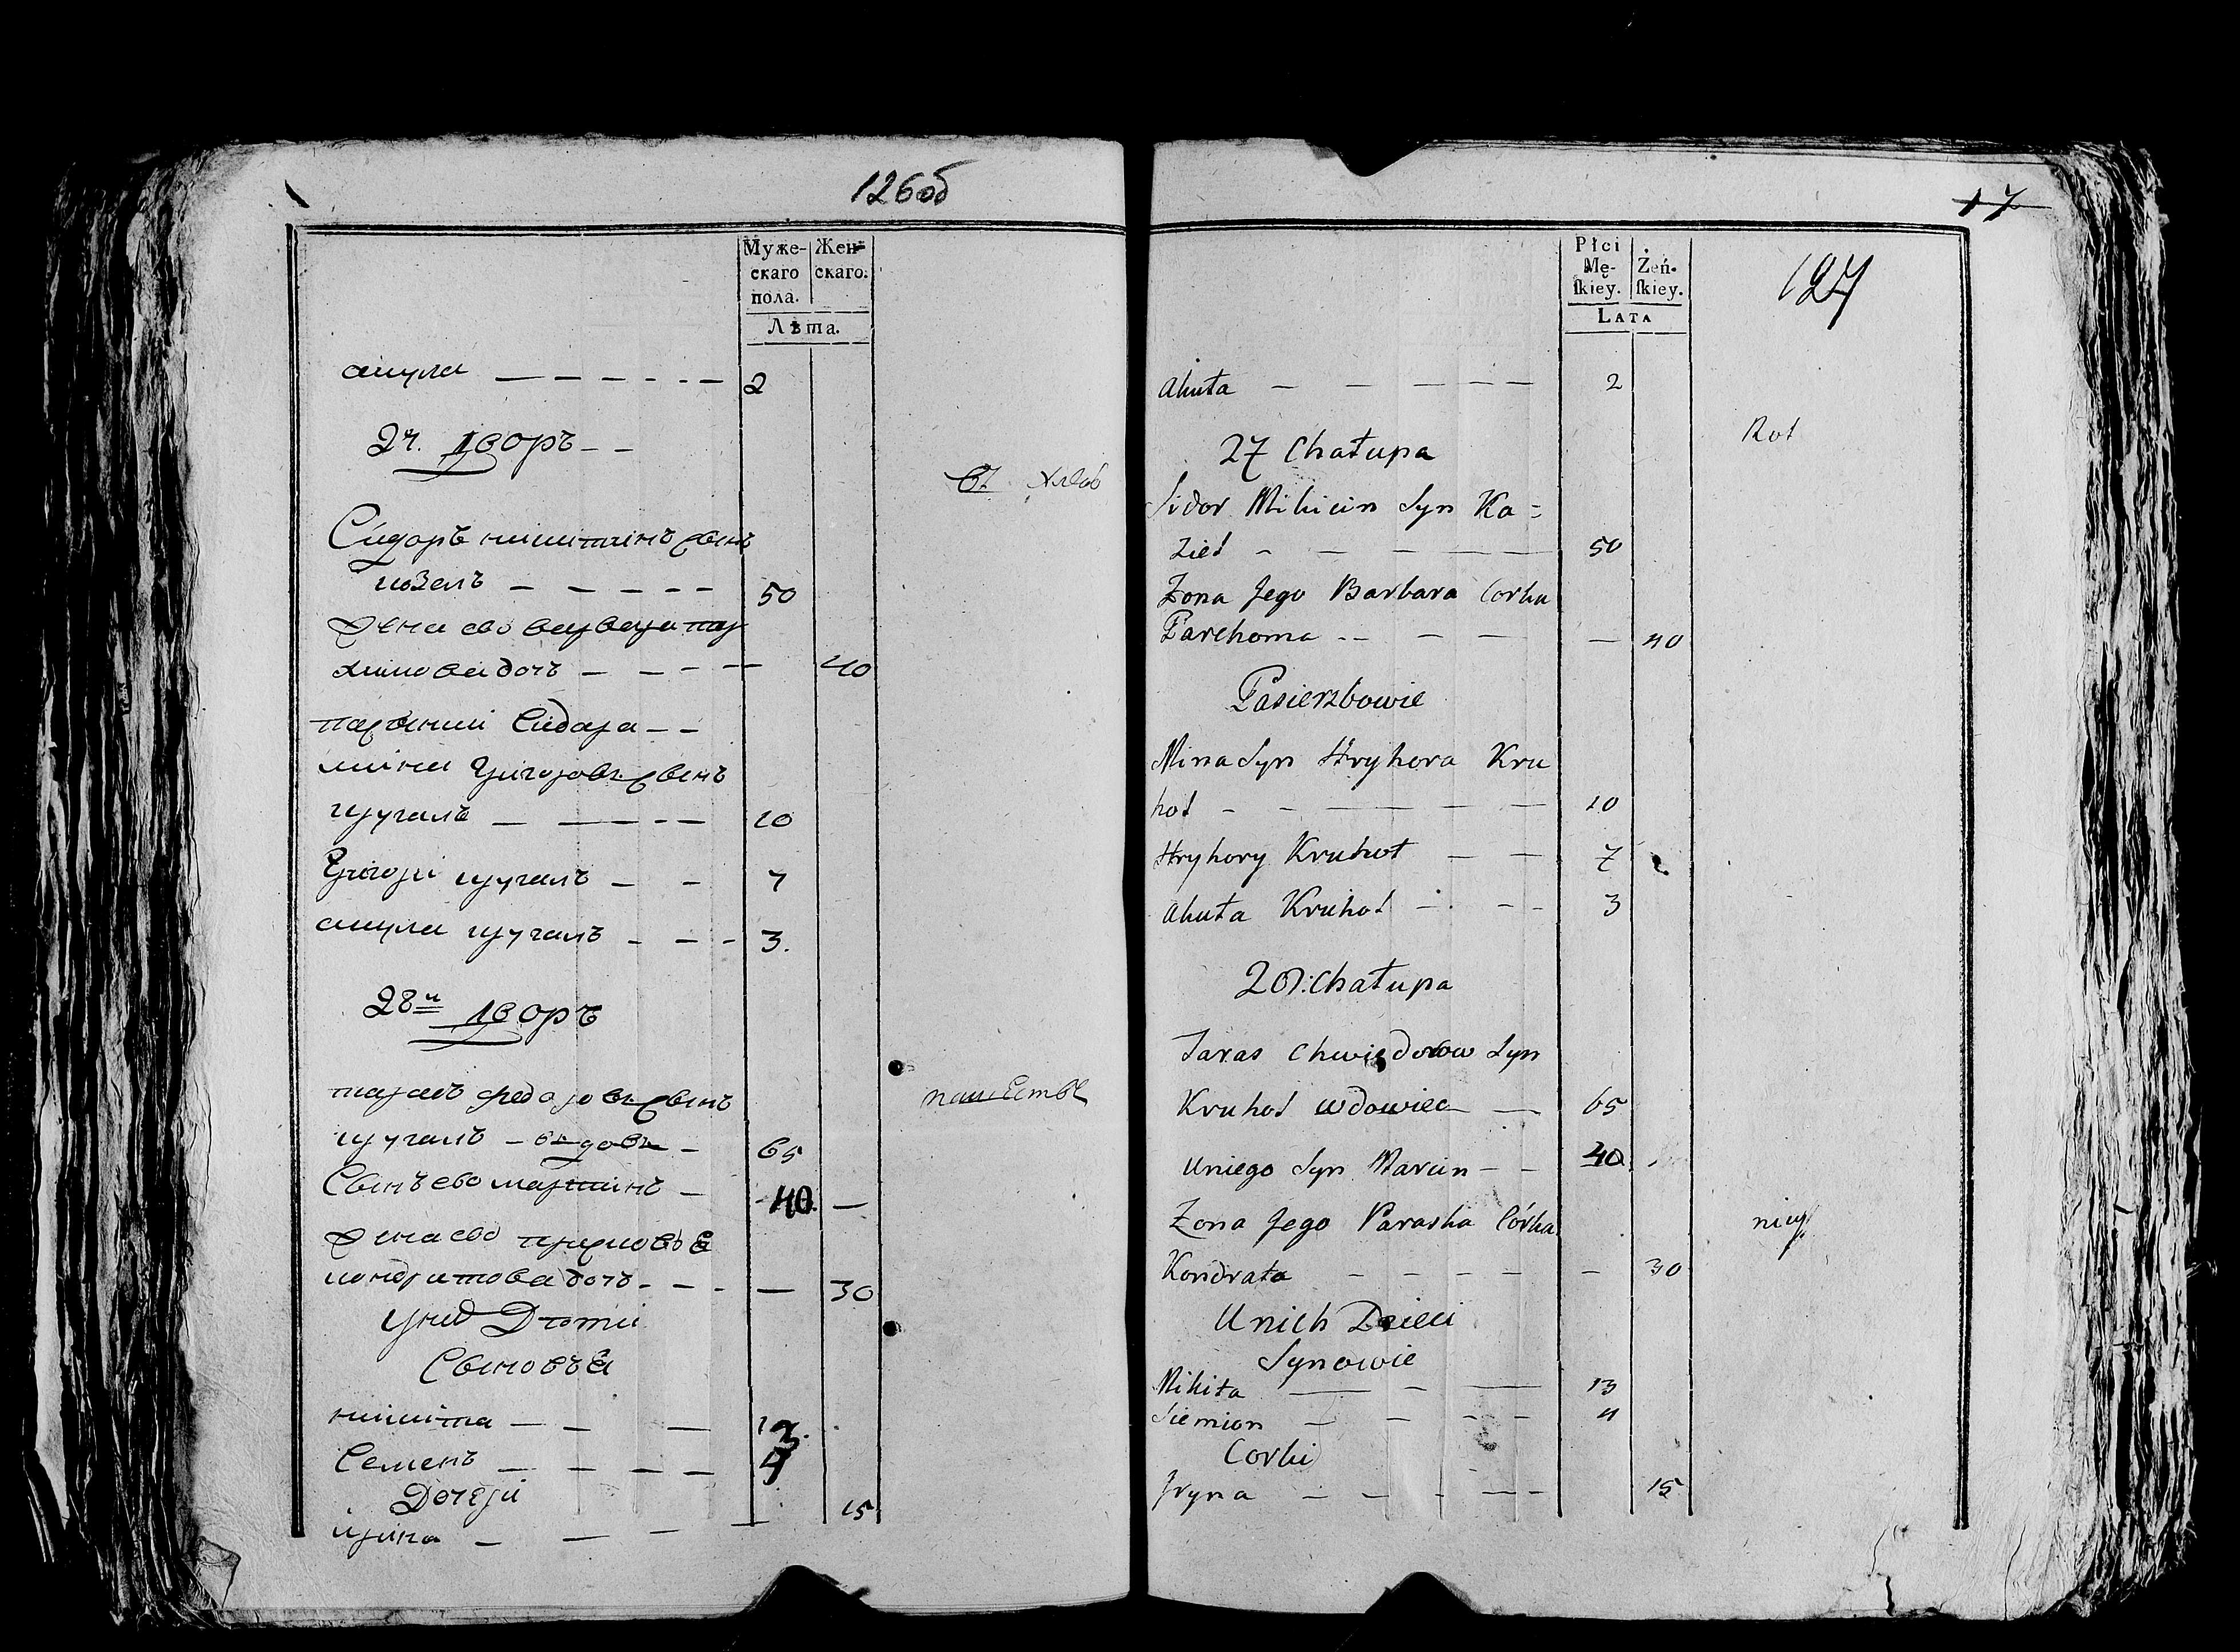 126об
Муже-
скаго
пола.
Жен-
скаго.
Лѣта.
акула — — — — — — 2
27. Дворъ — —
Сидоръ никитинъ сынъ
козелъ — — — — — 50
Жена ево варвара пар
химова дочь — — — — 40
пасынки Сидара — —
мина григоровъ сынъ
кругалъ — — — — — 10
Григори кругалъ — — 7
акула кругалъ — — — 3.
28й Дворъ
тарасъ федоровъ сынъ
кругалъ — вдовъ — 65
Сынъ ево мартинъ — 40. —
Жена ево
кондратова дочь — — — — 30
У них Дѣти
Сыновья
никита — — — 13.
Семенъ — — — — 4
Дочери
ирина — — — — 15
17
127
Płci
Mę-
ſkiey.
Żeń-
ſkiey.
LATA
Akuła — — — — — 2
27 Chałupa
Sidor Mikicin Syn Ko =
zieł — — — — — 50
Zona Jego Barbara Corka
Parchoma -- — — — 40
Pasierzbowie
Mina Syn Hryhora Kru
hoł — — — — — 10
Hryhory Kruhoł — — 7
Akuła Kruhoł — · — - 3
28: Chałupa
Taras Chwiedorow Syn
Kruhoł wdowiec — 65
Uniego Syn Marcin — — 40
Zona Jego Paraska Córka
Kondrata — — — — — 30
Unich Dzieci
Synowie
Mikita — — — 13
Siemion — — — — 4
Corki
Jryna — — — — — 15